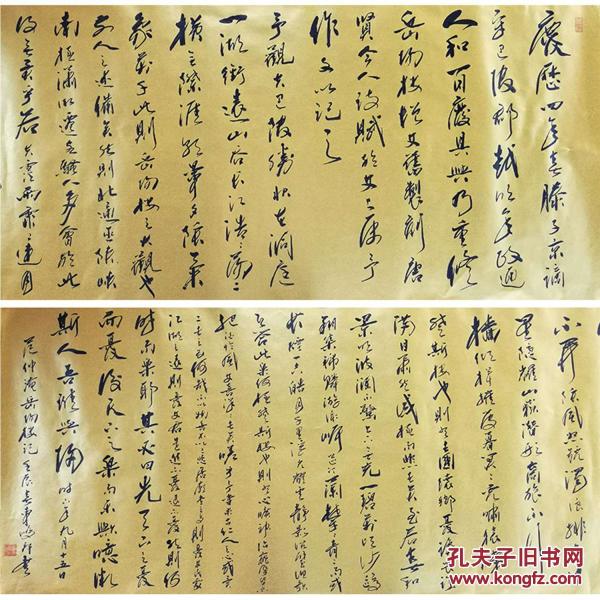 慶歷四年春滕子京謫
守巴陵郡越明年政通
人和百廢具興乃重修
岳陽樓增其舊製刻唐
賢今人詩賦於其上属予
作文以記之
予觀夫巴陵勝狀在洞庭
一湖銜遠山吞長江浩浩湯湯
橫無際涯朝暉夕陰氣
象萬千此則岳陽樓之大觀也
前人之述備矣然則北通巫峽
南極瀟湘遷客騷人多會於此
得無異乎若夫霪雨霏霏連月
不開陰風怒號濁浪排空
星隱耀山嶽潛形商旅不行
檣傾楫摧薄暮冥冥虎嘯猿啼
登斯樓也則有去國懷鄉憂讒畏譏
滿目蕭然感極而悲者矣至若春和
景明波瀾不驚上下天光一碧萬頃沙鷗
翔集錦鱗游泳岸芷汀蘭郁郁青青而或
長煙一空皓月千里浮光躍金靜影沉璧漁歌
互答此樂何極登斯樓也則有心曠神怡寵辱皆忘
把酒臨風其喜洋洋者矣嗟夫予嘗求古仁人之心或異
二者之為何哉不以物喜不以己悲居廟堂之高則憂其民處
江湖之遠則憂其君是進亦憂退亦憂然則何
時而樂耶其必曰先天下之憂
而憂後天下之樂而樂歟噫微
斯人吾誰與歸時六年九月十五日
范仲淹岳陽樓記
孔夫子旧书网
www.kongfz.com